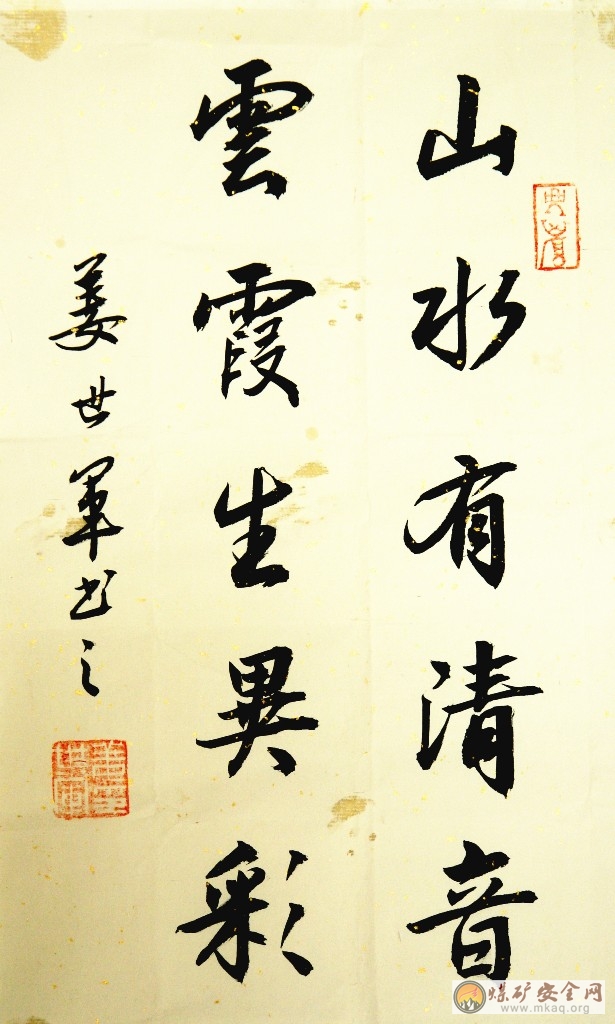 山水有清音
雲霞生異彩
姜世軍书之
煤矿安全网
www.mkaq.org